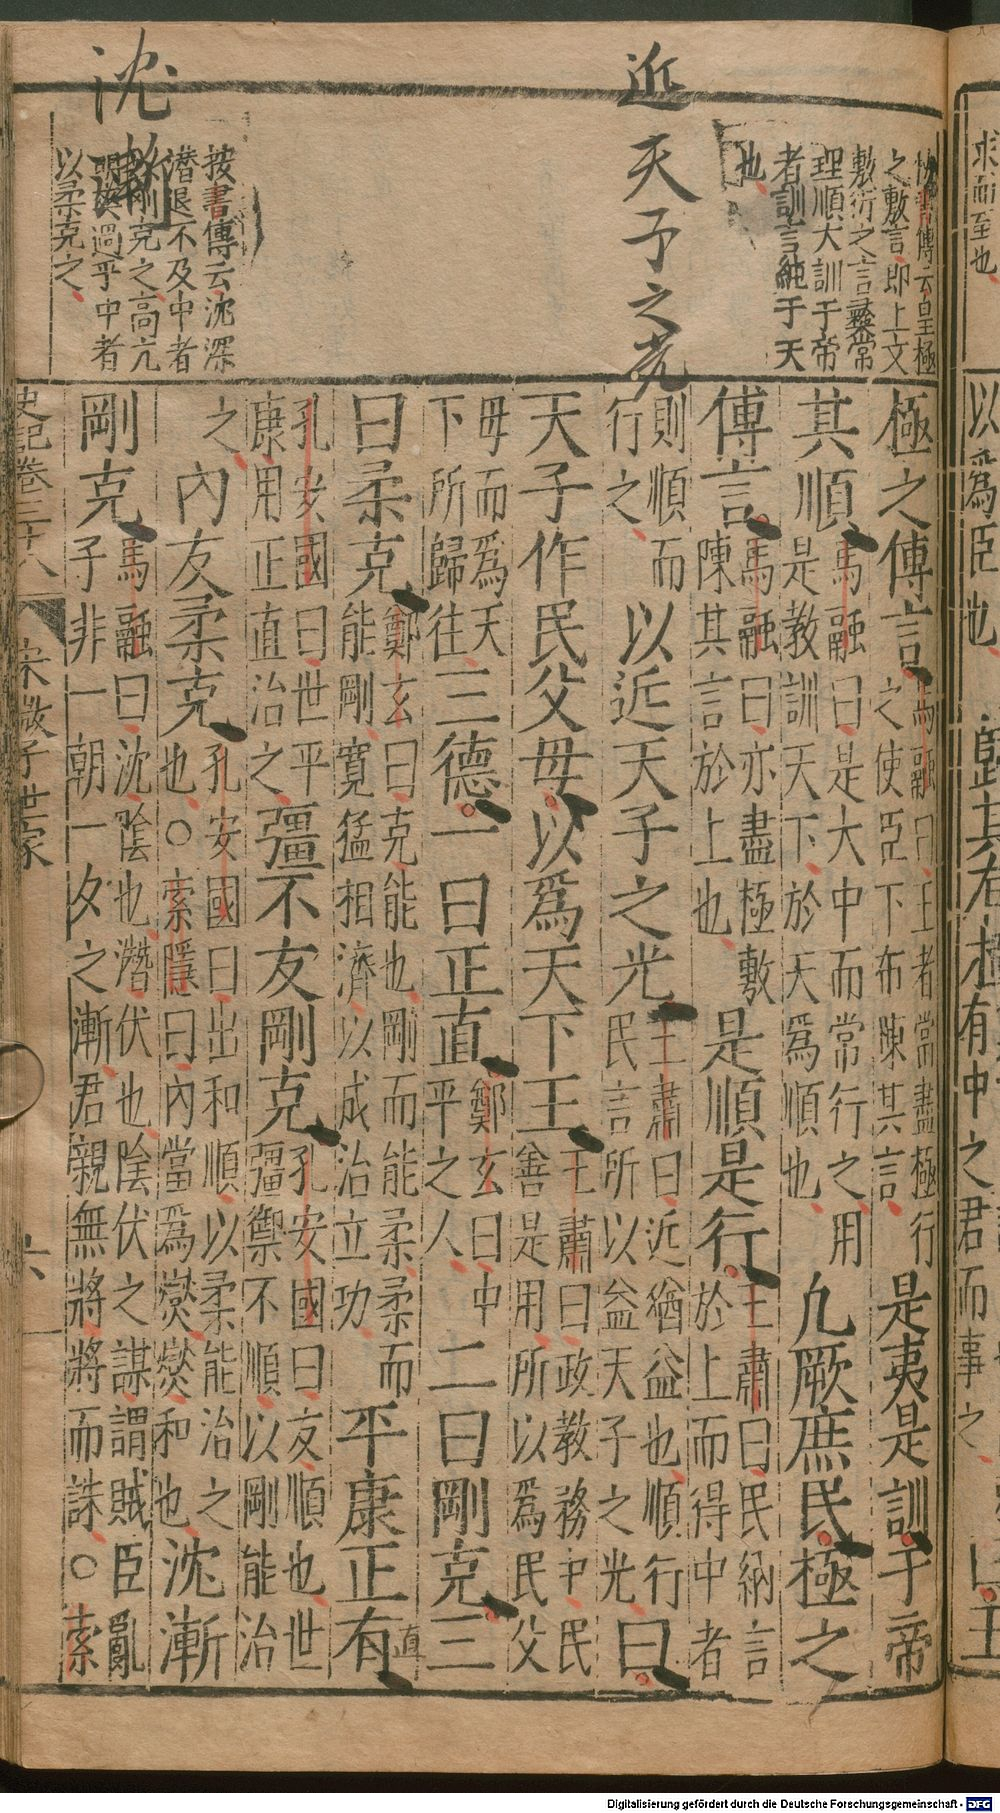 求而至也
以爲臣也
歸其有極
有中之君而事之
近天子之光
沈
書傳云皇極
之敷言即上文
敷衍之言彝常
理順大訓于帝
者訓言純于天
也
按書傳云沈深
潛退不及中者
剛克之高亢
明爽過乎中者
以柔克之
極之傅言馬融曰王者當盡極行之使臣下布陳其言是夷是訓于帝
其順馬融曰是大中而常行之用是教訓天下於天爲順也凢厥庶民極之
傅言馬融曰亦盡極敷陳其言於上也是順是行王肅曰民納言於上而得中者
則順而行之以近天子之光王肅曰近猶益也順行民言所以益天子之光曰
天子作民父母以爲天下王王肅曰政教務中民善是用所以爲民父
母而爲天下所歸往三德一曰正直鄭玄曰中平之人二曰剛克三
曰柔克鄭玄曰克能也剛而能柔柔而能剛寬猛相濟以成治立功平康正有直
孔安國曰世平康用正直治之彊不友剛克孔安國曰友順也世彊禦不順以剛能治
之內友柔克孔安國曰出和順以柔能治之也○索隱曰內當爲燮燮和也沈漸
剛克馬融曰沈陰也潛伏也陰伏之謀謂賊臣亂子非一朝一夕之漸君親無將將而誅○索
史記卷三十八
宋微子世家
六
Digitalisierung gefördert durch die Deutsche Forschungsgemeinschaft - DFG